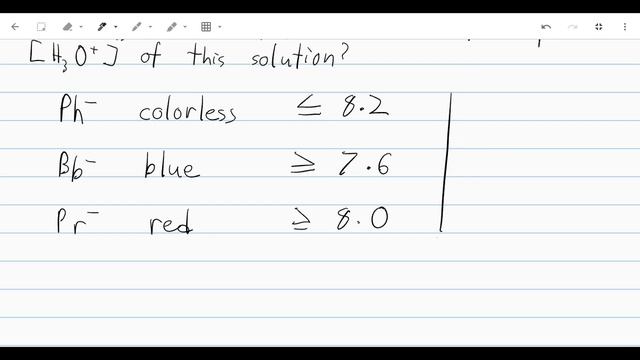 [H₃O⁺] of this solution?
Ph⁻ colorless ≤ 8.2
Bb⁻ blue ≥ 7.6
Pr⁻ red ≥ 8.0